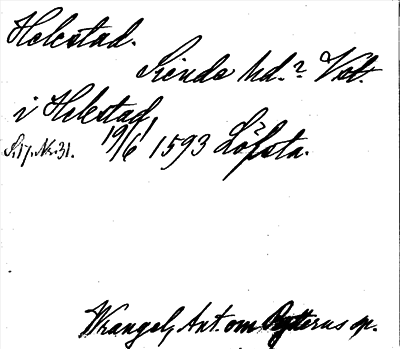 Helestad.
Siende hd.? Vstt.
i Helestad,
S. 17. Nr. 31. 19/6 1593 Löfsta.
Wrangel, Ant. om Rytterus sp.